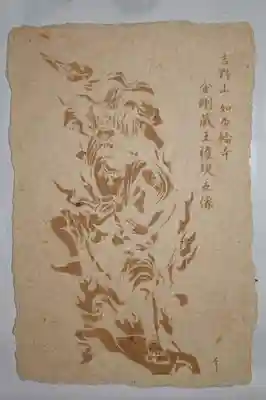 吉野山 如意輪寺
金剛蔵王権現立像